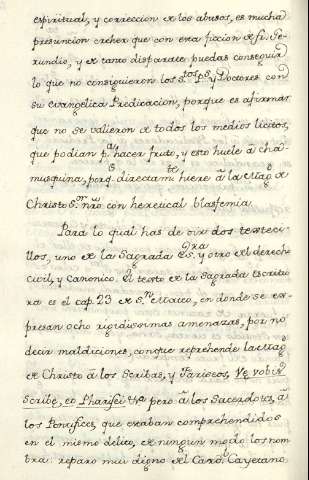 espiritual, y correccion de los abusos, es mucha
presuncion creher que con esta ficcion de fr. Ge-
rundio, y de tanto disparate puedas conseguir
lo que no consiguieron los S.tos P.s y Doctores con
su evangelica Predicacion, porque es afirmar
que no se valieron de todos los medios licitos,
que podian p.a hacer fruto, y esto huele á cha-
musquina, porq.e directam.te hiere á la Mag.d de
Christo S.or nr̃o con heretical blasfemia.
Para lo qual has de oir dos texteci-
llos, uno de la Sagrada Es.ra y otro del derecho
civil, y canonico. El texto de la Sagrada Escritu-
ra es el cap. 23 de S.n Matheo, en donde se ex-
presan ocho rigidisimas amenazas, por no
decir maldiciones, conque reprehende la Mag.d
de Christo á los Scribas, y Fariseos, Vę vobis
Scribę, et Pharisei &a pero á los Sacerdotes, á
los Pontifices, que estaban comprehendidos
en el mismo delito, de ningun modo los nom-
bra: reparo mui digno del Card.l Cayetano